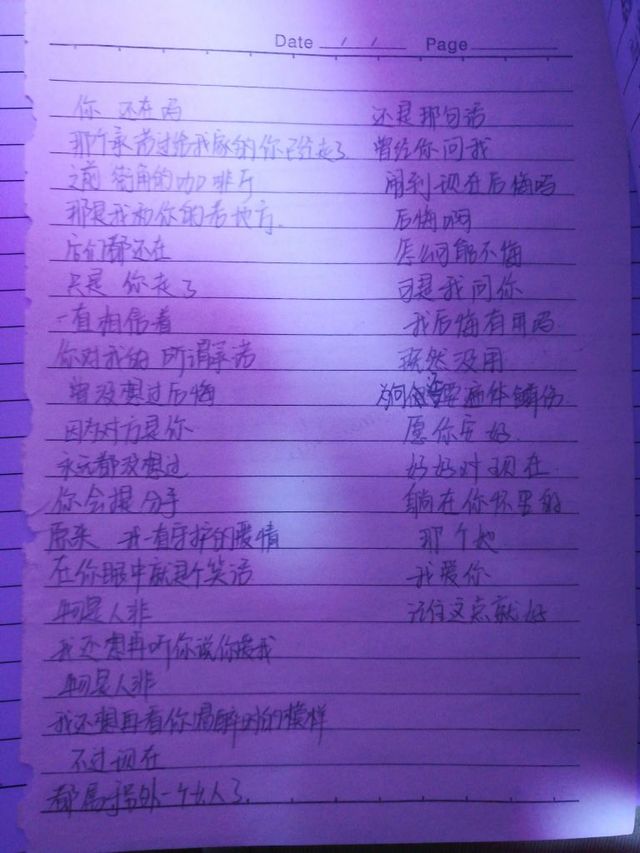 Date / / Page
你 还在吗
那个承诺过给我家的你已经走了
之前 街角的咖啡厅
那是我和你的老地方.
店们都还在
只是 你走了
一直相信着
你对我的 所谓承诺
曾没想过后悔
因为对方是你
永远都没想过
你会提分手
原来 我一直守护的爱情
在你眼中就是个笑话
物是人非
我还想再听你说你爱我
物是人非
我还想再看你喝醉时的模样
不过现在
都属于另外一个女人了.
还是那句话
曾经你问我
闹到现在后悔吗
后悔啊
怎么可能不悔
可是我问你
我后悔有用吗
既然没用
为何 要遍体鳞伤
愿你安好.
好好对现在
躺在你怀里的
那个她
我爱你
记住这点就好